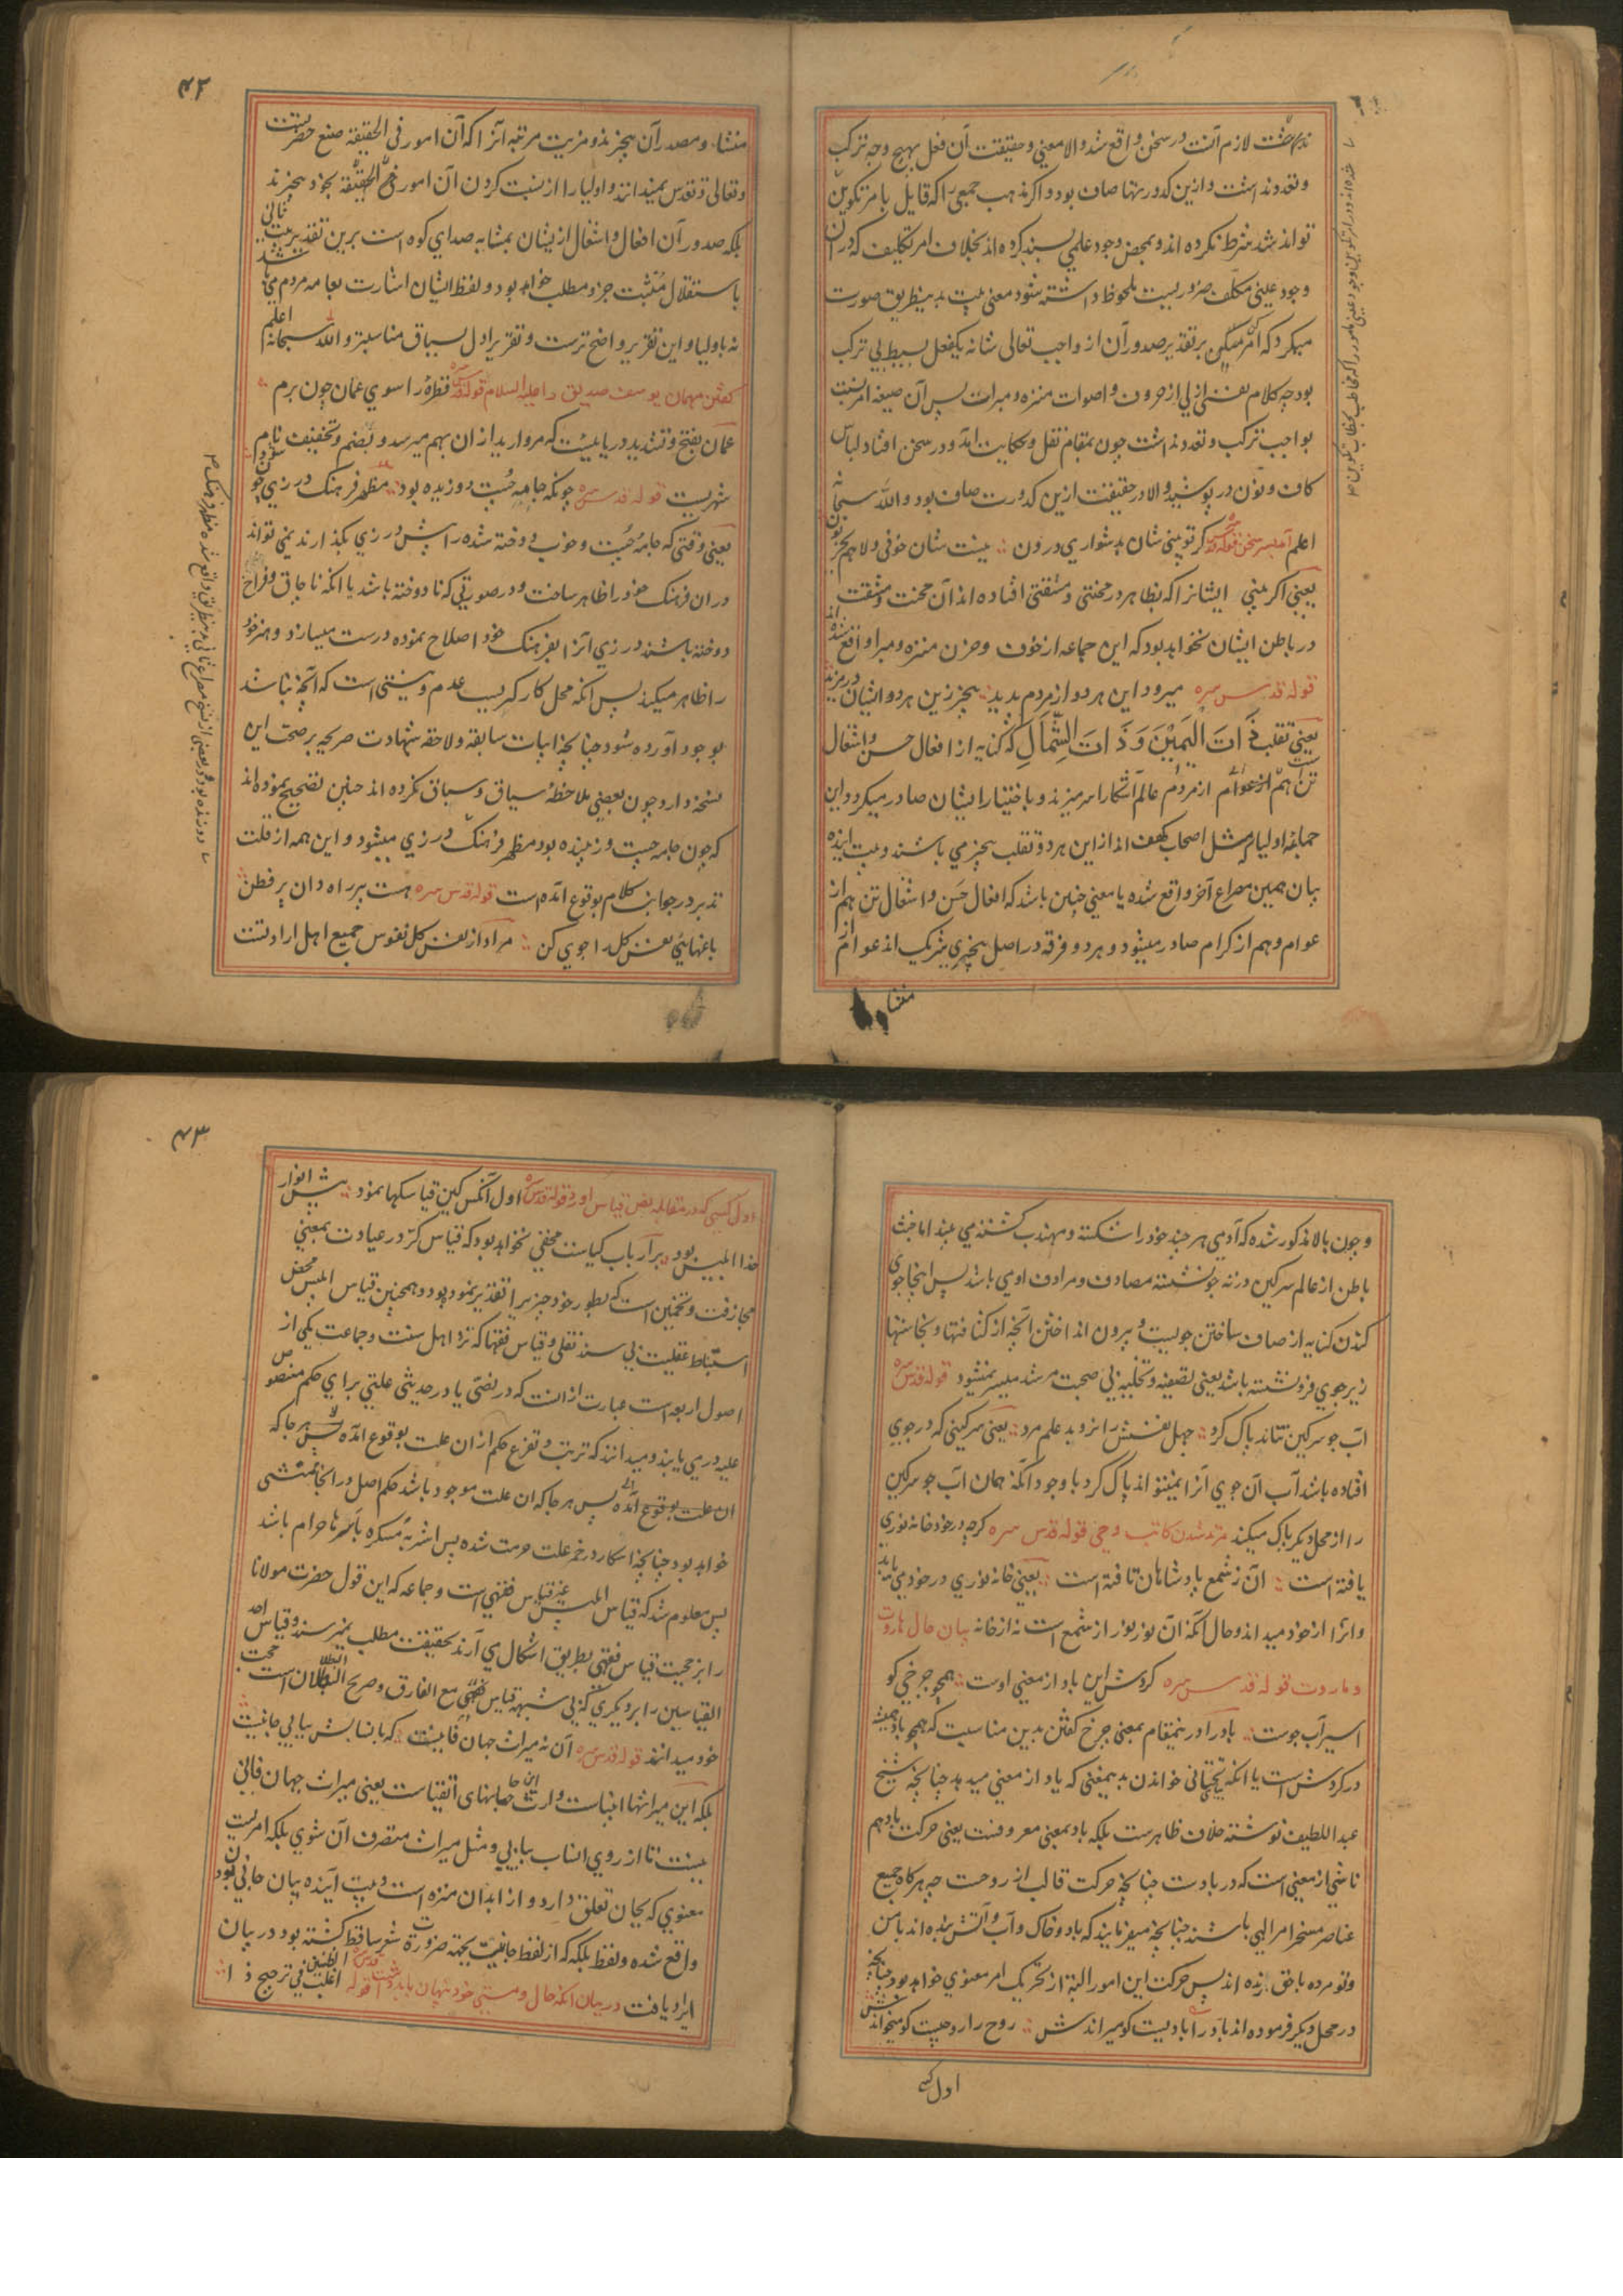 لازم آنست در سخن واقع شد والا معنی و حقیقت آن فعل بهیچ وجه ترکب
و تعدد نداشت و ازین کدورتها صاف بود و اگر مذهب جمعی را که قایل بامر تکوین
نواند شد شرط نکرده اند و بمحض وجود علمی بسند کرده اند بخلاف امر تکلیف که در آن
وجود عینی مکلف ضروریست ملحوظ داشته شود معنی بیت بدینطریق صورت
میگیرد که امر کن بر تقدیر صدور آن از واجب تعالی شانه یکفعل بسیط بی ترکب
بود چه کلام نفسی ازلی از حروف و اصوات منزه و مبراست پس آن صیغه امر نسبت
بواجب ترکب و تعدد نداشت چون بمقام نقل و حکایت آمد و در سخن افتاد لباس
کاف و نون در پوشید والا در حقیقت ازین کدورت صاف بود والله سبحانه
اعلم آمد بسر سخن قوله قدس سره گر تو بینی شان بدشواری درون نیست شان خوفی ولا هم یحزنون
یعنی اگر بینی ایشانرا که بظاهر در محنتی و مشقتی افتاده اند آن محنت و مشقت
در باطن ایشان نخواهد بود که این جماعه از خوف و حزن منزه و مبرا واقع شده اند
قوله قدس سره میرود این هر دو از مردم پدید بیخبر زین هر دو ایشان در مزید
یعنی تقلب ذَاتَ الْیَمِیْنَ وَ ذَاتَ الشِّمَالِ که کنایه از افعال حسن و اشغال
تن است هم از عوام از مردم عالم آشکارا سر میزند و باختیار ایشان صادر میگردد و این
جماعه اولیا که مثل اصحاب کهف اند ازین هر دو تقلب بیخبر می باشند و بیت آینده
بیان همین مصراع آخر واقع شده یا معنی چنین باشد که افعال حسن و اشغال تن هم از
عوام و هم از کرام صادر میشود و هر دو فرقه در اصل بیخبری شریک اند عوام از
منشاء
۴۲
منشاء و مصدر آن بیخبرند و مزیت مرتبه آنرا که آن امور فی الحقیقة صنع حضرتست
و تعالی و تقدس نمیدانند و اولیا را از نسبت کردن آن امور فی الحقیقة بخود بیخبرند
بلکه صدور آن افعال و اشغال ازیشان بمثابه صدای کوه است برین تقدیر بیت ثانی
باستقلال مثبت جزو مطلب خواهد بود و لفظ ایشان اشارت بعامه مردم می باشد
نه باولیا و این تقریر واضح ترست و تقریر اول بسیاق مناسبتر والله سبحانه اعلم
گفتن مهمان یوسف صدیق را علیه السلام قوله قدس سره قطرهٔ را سوی عمان چون برم
عمان بفتح و تشدید دریائیست که مروارید ازان بهم میرسد و بضم و تخفیف نام
شهریست قوله قدس سره چونکه جامه چست و دوزیده بود مظهر فرهنگ درزی چون شود
یعنی وقتی که جامهٔ چست و خوب دوخته شده را پیش درزی بگذارند نمی تواند
دران فرهنگ خود را ظاهر ساخت و در صورتی که نا دوخته باشد یا آنکه ناچاق و فراخ
دوخته باشند درزی آنرا بفرهنگ خود اصلاح نموده درست میسازد و هنر خود
را ظاهر میکند پس آنکه محل کارگریست عدم و نیستی است که آنچه نباشد
بوجود آورده شود چنانچه ابیات سابقه و لاحقه شهادت صریحه بر صحت این
نسخه دارد چون بعضی ملاحظهٔ سیاق و سباق نکرده اند چنین تصحیح نموده اند
که چون جامه چست و زیبنده بود مظهر فرهنگ درزی میشود و این همه از قلت
تدبر در جوانب کلام بوقوع آمده است قوله قدس سره هست پیر راه دان پر فطن
باغهائی نفس کل را جوی کن مراد از نفس کل نفوس جمیع اهل ارادتست
و چون بالا مذکور شده که آدمی هر چند خود را شکسته و مهذب گشته می بیند اما خبث
باطن از عالم سرگین در ته جو نشسته مصادف و مرادف او می باشد پس اینجا جوی
کندن کنایه از صاف ساختن جویست و بیرون انداختن آنچه از کثافتها و نجاستها
زیر جوی فرو نشسته باشد یعنی تصفیه و تخلیه بی صحبت مرشد میسر نمیشود قوله قدس سره
آب جو سرگین نتاند پاک کرد جهل نفسش را نروبد علم مرد یعنی سرگینی که در جوی
افتاده باشد آب آن جوی آنرا نمیتواند پاک کرد با وجود آنکه همان آب جو سرگین
را از محل دیگر پاک میکند مرتد شدن کاتب وحی قوله قدس سره گرچه در خود خانه نوری
یافته است آن ز شمع پادشاهان تافته است یعنی خانه نوری در خود می یابد
و انرا از خود میداند و حال آنکه آن نور نور از شمع است نه از خانه بیان حال هاروت
و ماروت قوله قدس سره گردش این باد از معنی اوست همچو چرخی کو
اسیر آب جوست باد را درینمقام بمعنی چرخ گفتن بدین مناسبت که همچو باد همیشه
در گردش است یا آنکه بتحتانی خواندن بدینمعنی که یاد از معنی میدهد چنانچه شیخ
عبد اللطیف نوشته خلاف ظاهرست بلکه باد بمعنی معروفست یعنی حرکت باد هم
ناشی از معنی است که در بادست چنانچه حرکت قالب از روحست چه هرگاه جمیع
عناصر مسخر امر الهی باشند چنانچه میفرمایند که باد و خاک و آب و آتش بنده اند با من
و تو مرده با حق زنده اند پس حرکت این امور البته از تحریک امر معنوی خواهد بود چنانچه
در محل دیگر فرموده اند باد را بادیست کو میراندش روح را روحیست کو میخواندش
اول کسی
۴۳
اول کسی که در مقابله نص قیاس آورد قوله قدس سره اول آنکس کین قیاسکها نمود پیش انوار
خدا ابلیس بود بر ارباب کیاست مخفی نخواهد بود که قیاس کردر عبادت بمعنی
مجازفت و تخمین است که بطور خود چیزیرا تقدیر نمود بود و همچنین قیاس ابلیس محض
استنباط عقلیست بی سند نقلی و قیاس فقها که نزد اهل سنت و جماعت یکی از
اصول اربعه است عبارت از آنست که در نصی یا در حدیثی علتی برای حکم منصوص
علیه در می یابند و میدانند که ترتب و تفرع حکم ازان علت بوقوع آمده پس هرجا که
ان علت بوقوع آمده پس هر جا که ان علت موجود باشد حکم اصل در انجا متمشی
خواهد بود چنانچه اسکار در خمر علت حرمت شده پس اشربهٔ مسکره باسرها حرام باشد
پس معلوم شد که قیاس ابلیس غیر قیاس فقهی است و جماعه که این قول حضرت مولانا
را بر حجیت قیاس فقهی بطریق اشکال می آرند بحقیقت مطلب نمیرسند و قیاس احد
القیاسین را بر دیگری که بی شبهه قیاس مع الفارق و صریح البطلان است حجت
خود میدانند قوله قدس سره آن نه میراث جهان فانیست که بانسابش بیابی جانیست
بلکه این میراثها انبیاست وارث این جانهای اتقیاست یعنی میراث جهان فانی
نیست تا از روی انساب بیابی و مثل میراث متصرف آن شوی بلکه امریست
معنوی که بجان تعلق دارد و از ابدان منزه است و بیت آینده بیان جانی بودن
واقع شده و لفظ بلکه که از لفظ جانیست بجهة ضرورت شعر ساقط گشته بود در بیان
ایراد یافت در بیان آنکه حال و مستی خود پنهان باید داشت قوله قدس سره اغلب الظنین فی ترجیح ذا